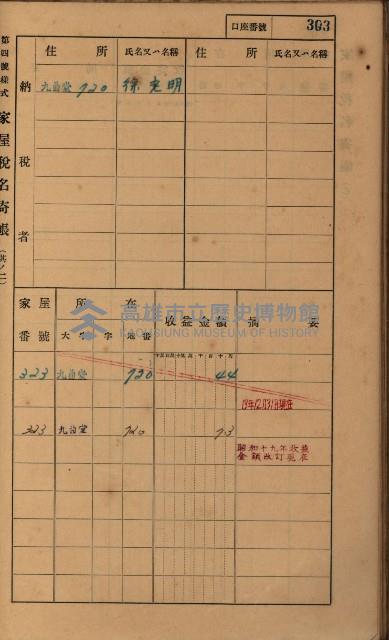 口座番號 303
第四號樣式 家屋稅名寄帳（其ノ二）
住所 氏名又ハ名稱 住所 氏名又ハ名稱
納稅者
九曲堂 720 徐 老 明
家屋番號 所在 收益金額 摘要
大字 字 地番
高雄市立歷史博物館
KAOHSIUNG MUSEUM OF HISTORY
323 九曲堂 720 44
19年12月31日現在
323 九曲堂 720 73
昭和十九年收益
金額改訂現在